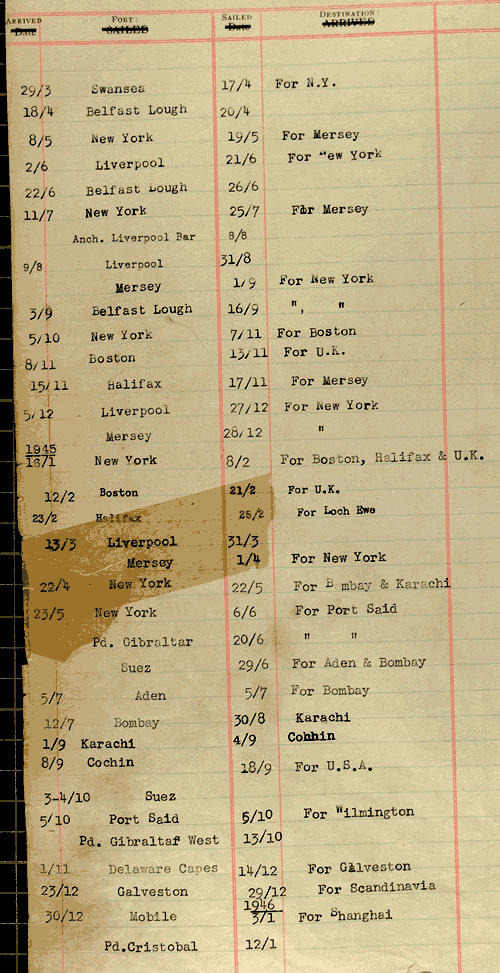 ARRIVED PORT: SAILED DESTINATION:
Date SAILED Date ARRIVED
29/3 Swansea 17/4 For N.Y.
18/4 Belfast Lough 20/4
8/5 New York 19/5 For Mersey
2/6 Liverpool 21/6 For "ew York
22/6 Belfast Lough 26/6
11/7 New York 25/7 For Mersey
Anch. Liverpool Bar 8/8
9/8 Liverpool 31/8
Mersey 1/9 For New York
3/9 Belfast Lough 16/9 ", "
5/10 New York 7/11 For Boston
8/11 Boston 13/11 For U.K.
15/11 Halifax 17/11 For Mersey
5/12 Liverpool 27/12 For New York
Mersey 28/12 "
1945
16/1 New York 8/2 For Boston, Halifax & U.K.
12/2 Boston 21/2 For U.K.
23/2 Halifax 25/2 For Loch Ewe
13/3 Liverpool 31/3
Mersey 1/4 For New York
22/4 New York 22/5 For B mbay & Karachi
23/5 New York 6/6 For Port Said
Pd. Gibraltar 20/6 " "
Suez 29/6 For Aden & Bombay
5/7 Aden 5/7 For Bombay
12/7 Bombay 30/8 Karachi
1/9 Karachi 4/9 Cohhin
8/9 Cochin 18/9 For U.S.A.
3-4/10 Suez
5/10 Port Said 5/10 For Wilmington
Pd. Gibraltar West 13/10
1/11 Delaware Capes 14/12 For Galveston
23/12 Galveston 29/12 For Scandinavia
1946
30/12 Mobile 3/1 For Shanghai
Pd.Cristobal 12/1